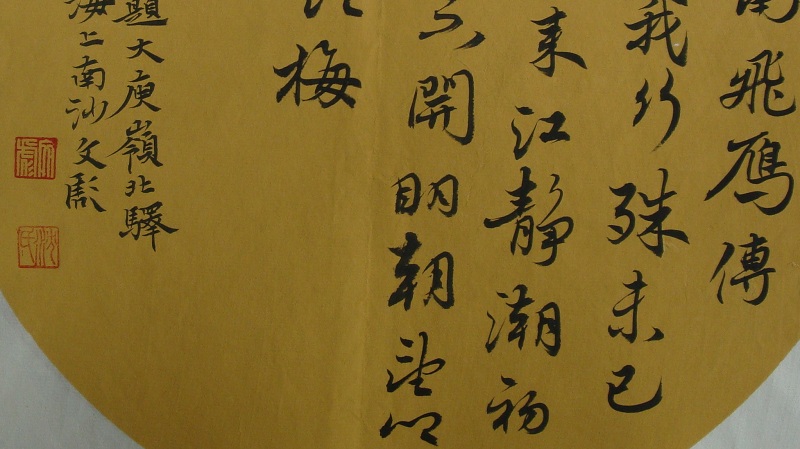 南飛鴈傳
我行殊未已
來江靜潮初
不開明朝望
梅
題大庾嶺北驛
海上南沙文彪